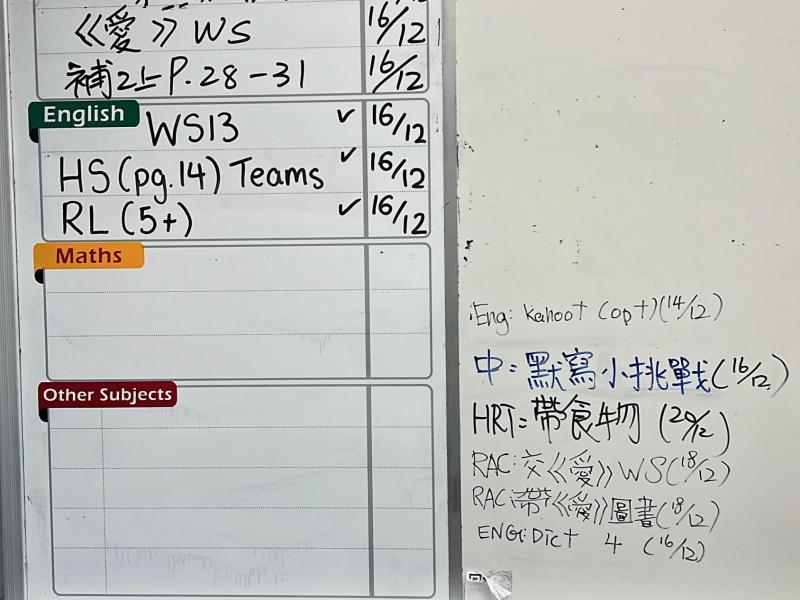 《愛》WS 16/12
補2上P.28-31 16/12
English
WS13 ✓ 16/12
HS(pg.14) Teams ✓ 16/12
RL (5+) ✓ 16/12
Maths
Other Subjects
Eng: Kahoot (opt)(14/12)
中:默寫小挑戰(16/12)
HRT:帶食物 (20/12)
RAC:交《愛》WS(18/12)
RAC:帶《愛》圖書(18/12)
ENG:Dict 4 (16/12)